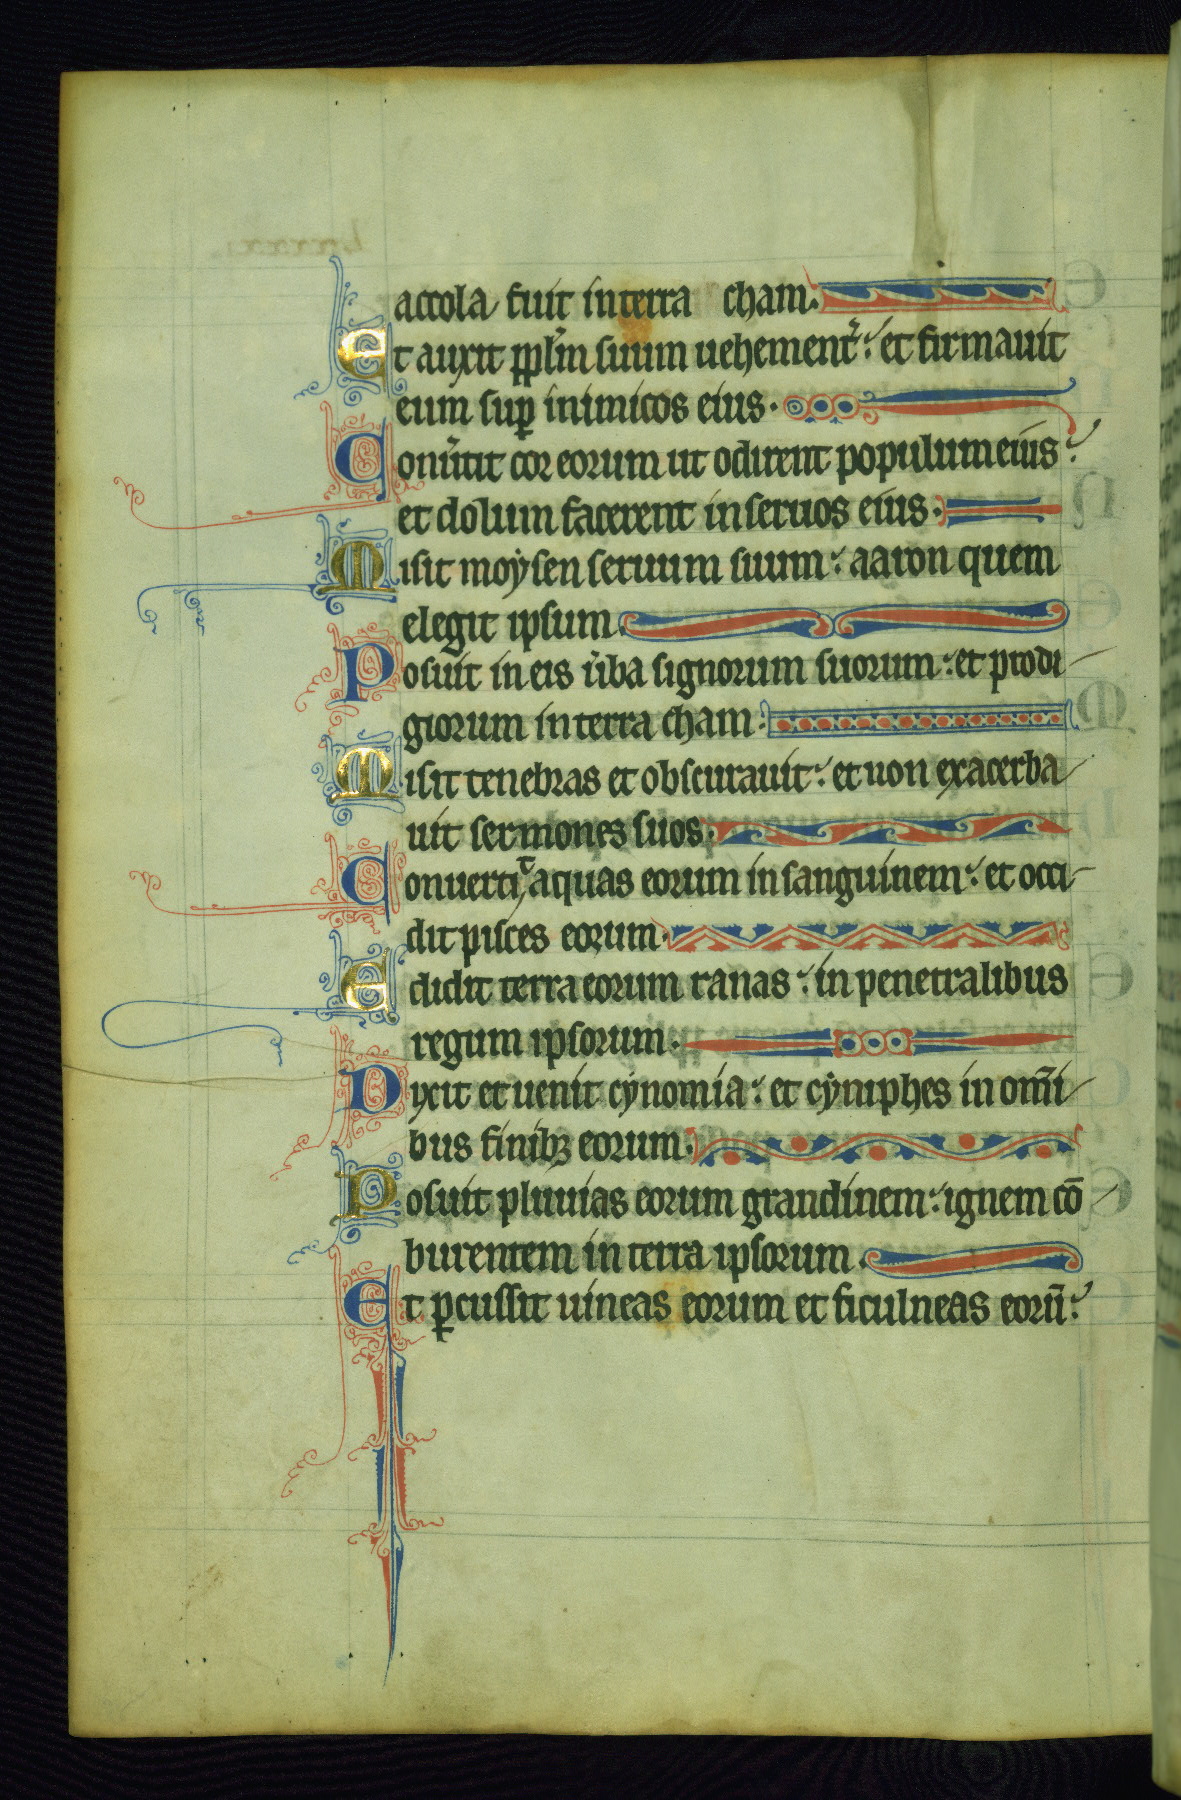 accola fuit in terra cham.
Et auxit pp̄lm suum uehement̉: et firmauit
eum suꝑ inimicos eius.
Conủtit cor eorum ut odirent populum eius:
et dolum facerent in seruos eius.
Misit moẏsen seruum suum: aaron quem
elegit ipsum.
Posuit in eis ủba signorum suorum: et prodi
giorum in terra cham.
Misit tenebras et obscurauit: et non exacerba
uit sermones suos.
Conuertit aquas eorum in sanguinem: et occi
dit pisces eorum.
Edidit terra eorum ranas: in penetralibus
regum ipsorum.
Dixit et uenit cẏnomia: et cẏniphes in om̄i
bus finibꝫ eorum.
Posuit pluuias eorum grandinem: ignem cō
burentem in terra ipsorum.
Et ꝑcussit uineas eorum et ficulneas eorū: